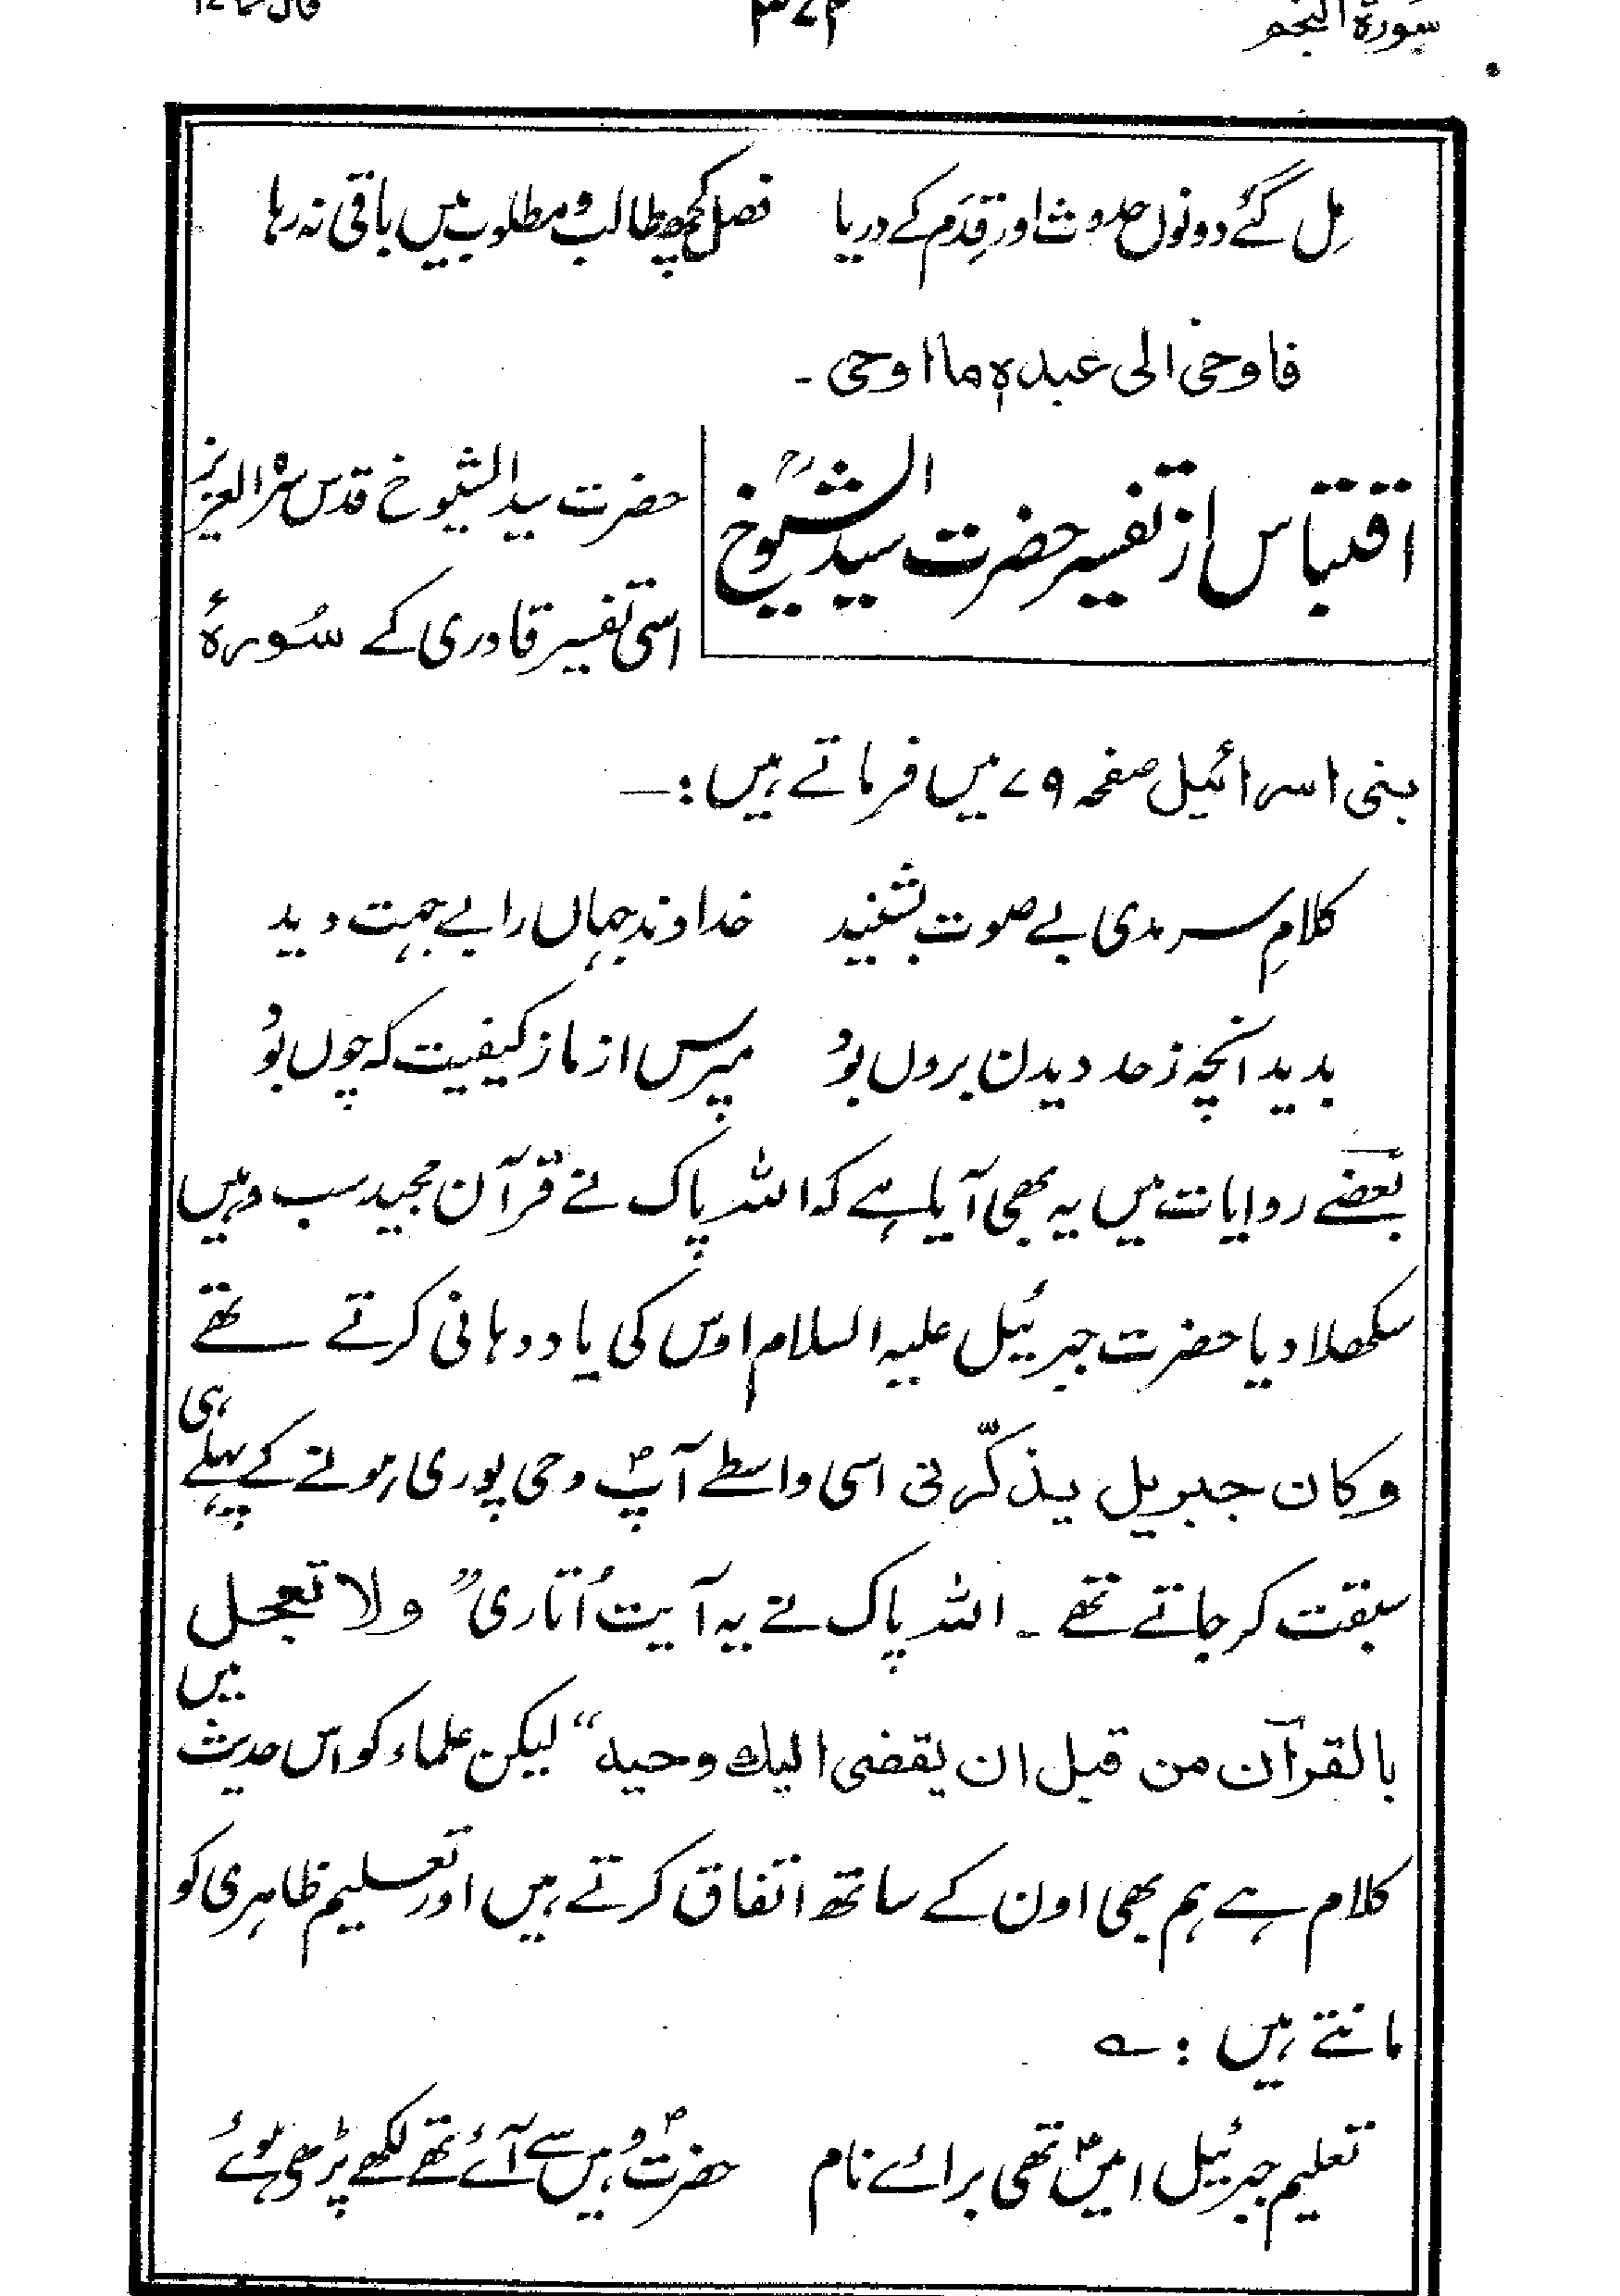 سورۃ النجم
مِل گئے دونوں حدوث اور قِدَم کے دریا فصل کچھ طالب و مطلوب میں باقی نہ رہا
فاوحیٰ الی عبدہٖ ما اوحی ۔
اقتباس از تفسیر حضرت سید الشیوخؒ
حضرت سید الشیوخ قدس سرہ العزیز
اسی تفسیر قادری کے سُورۂ
بنی اسرائیل صفحہ ۷۹ میں فرماتے ہیں :—
کلامِ سرمدی بے صوت بشنید خداوند جہاں را بے جہت دید
بدید انچہ ز حد دیدن بروں بوُد مپرس از ما ز کیفیت کہ چوں بوُد
بعضے روایات میں یہ بھی آیا ہے کہ اللہ پاک نے قرآن مجید سب وہیں
سکھلا دیا حضرت جبرئیل علیہ السلام اوس کی یاد دہانی کرتے تھے
و کان جبریل یذکّرنی اسی واسطے آپؐ وحی پوری ہونے کے پہلے ہی
سبقت کر جاتے تھے ۔ اللہ پاک نے یہ آیت اُتاری ” ولا تعجل
بالقرآن من قبل ان یقضی الیك وحیہ “ لیکن علماء کو اس حدیث میں
کلام ہے ہم بھی اون کے ساتھ اتفاق کرتے ہیں اور تعلیم ظاہری کو
مانتے ہیں : ؎
تعلیم جبرئیل امینؑ تھی برائے نام حضرتؐ وہیں سے آئے تھے لکھے پڑھے ہوئے